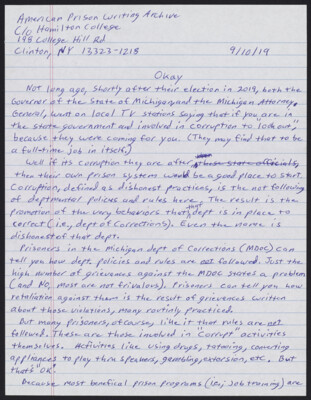 American Prison Writing Archive
c/o Hamilton College
198 College Hill Rd
Clinton, NY 13323-1218 9/10/19
Okay
Not long ago, shortly after their election in 2019, both the
Governor of the State of Michigan, and the Michigan Attorney
General, went on local TV stations saying that if you are in
the state government and involved in corruption to "look out",
because they were coming for you. (They may find that to be
a full-time job in itself.)
Well if its corruption they are after
then their own prison system would be a good place to start.
Corruption, defined as dishonest practices, is the not following
of deptmental policies and rules here. The result is the
promotion of the very behaviors that dept is in place to
correct (i.e., dept of Corrections). Even the name is
dishonest of that dept.
Prisoners in the Michigan dept of Corrections (MDOC) can
tell you how dept. policies and rules are not followed. Just the
high number of grievances against the MDOC states a problem
(and No, most are not frivalous). Prisoners can tell you how
retaliation against them is the result of grievances written
about those violations, many routinly practiced.
But many prisoners, of course, like it that rules are not
followed. These are those involved in "corrupt" activities
themselves. Activities like using drugs, tatooing, converting
appliances to play thru speakers, gambling, extorsion, etc. But
that's "OK".
Because most benefical prison programs (i.e., Job training) are